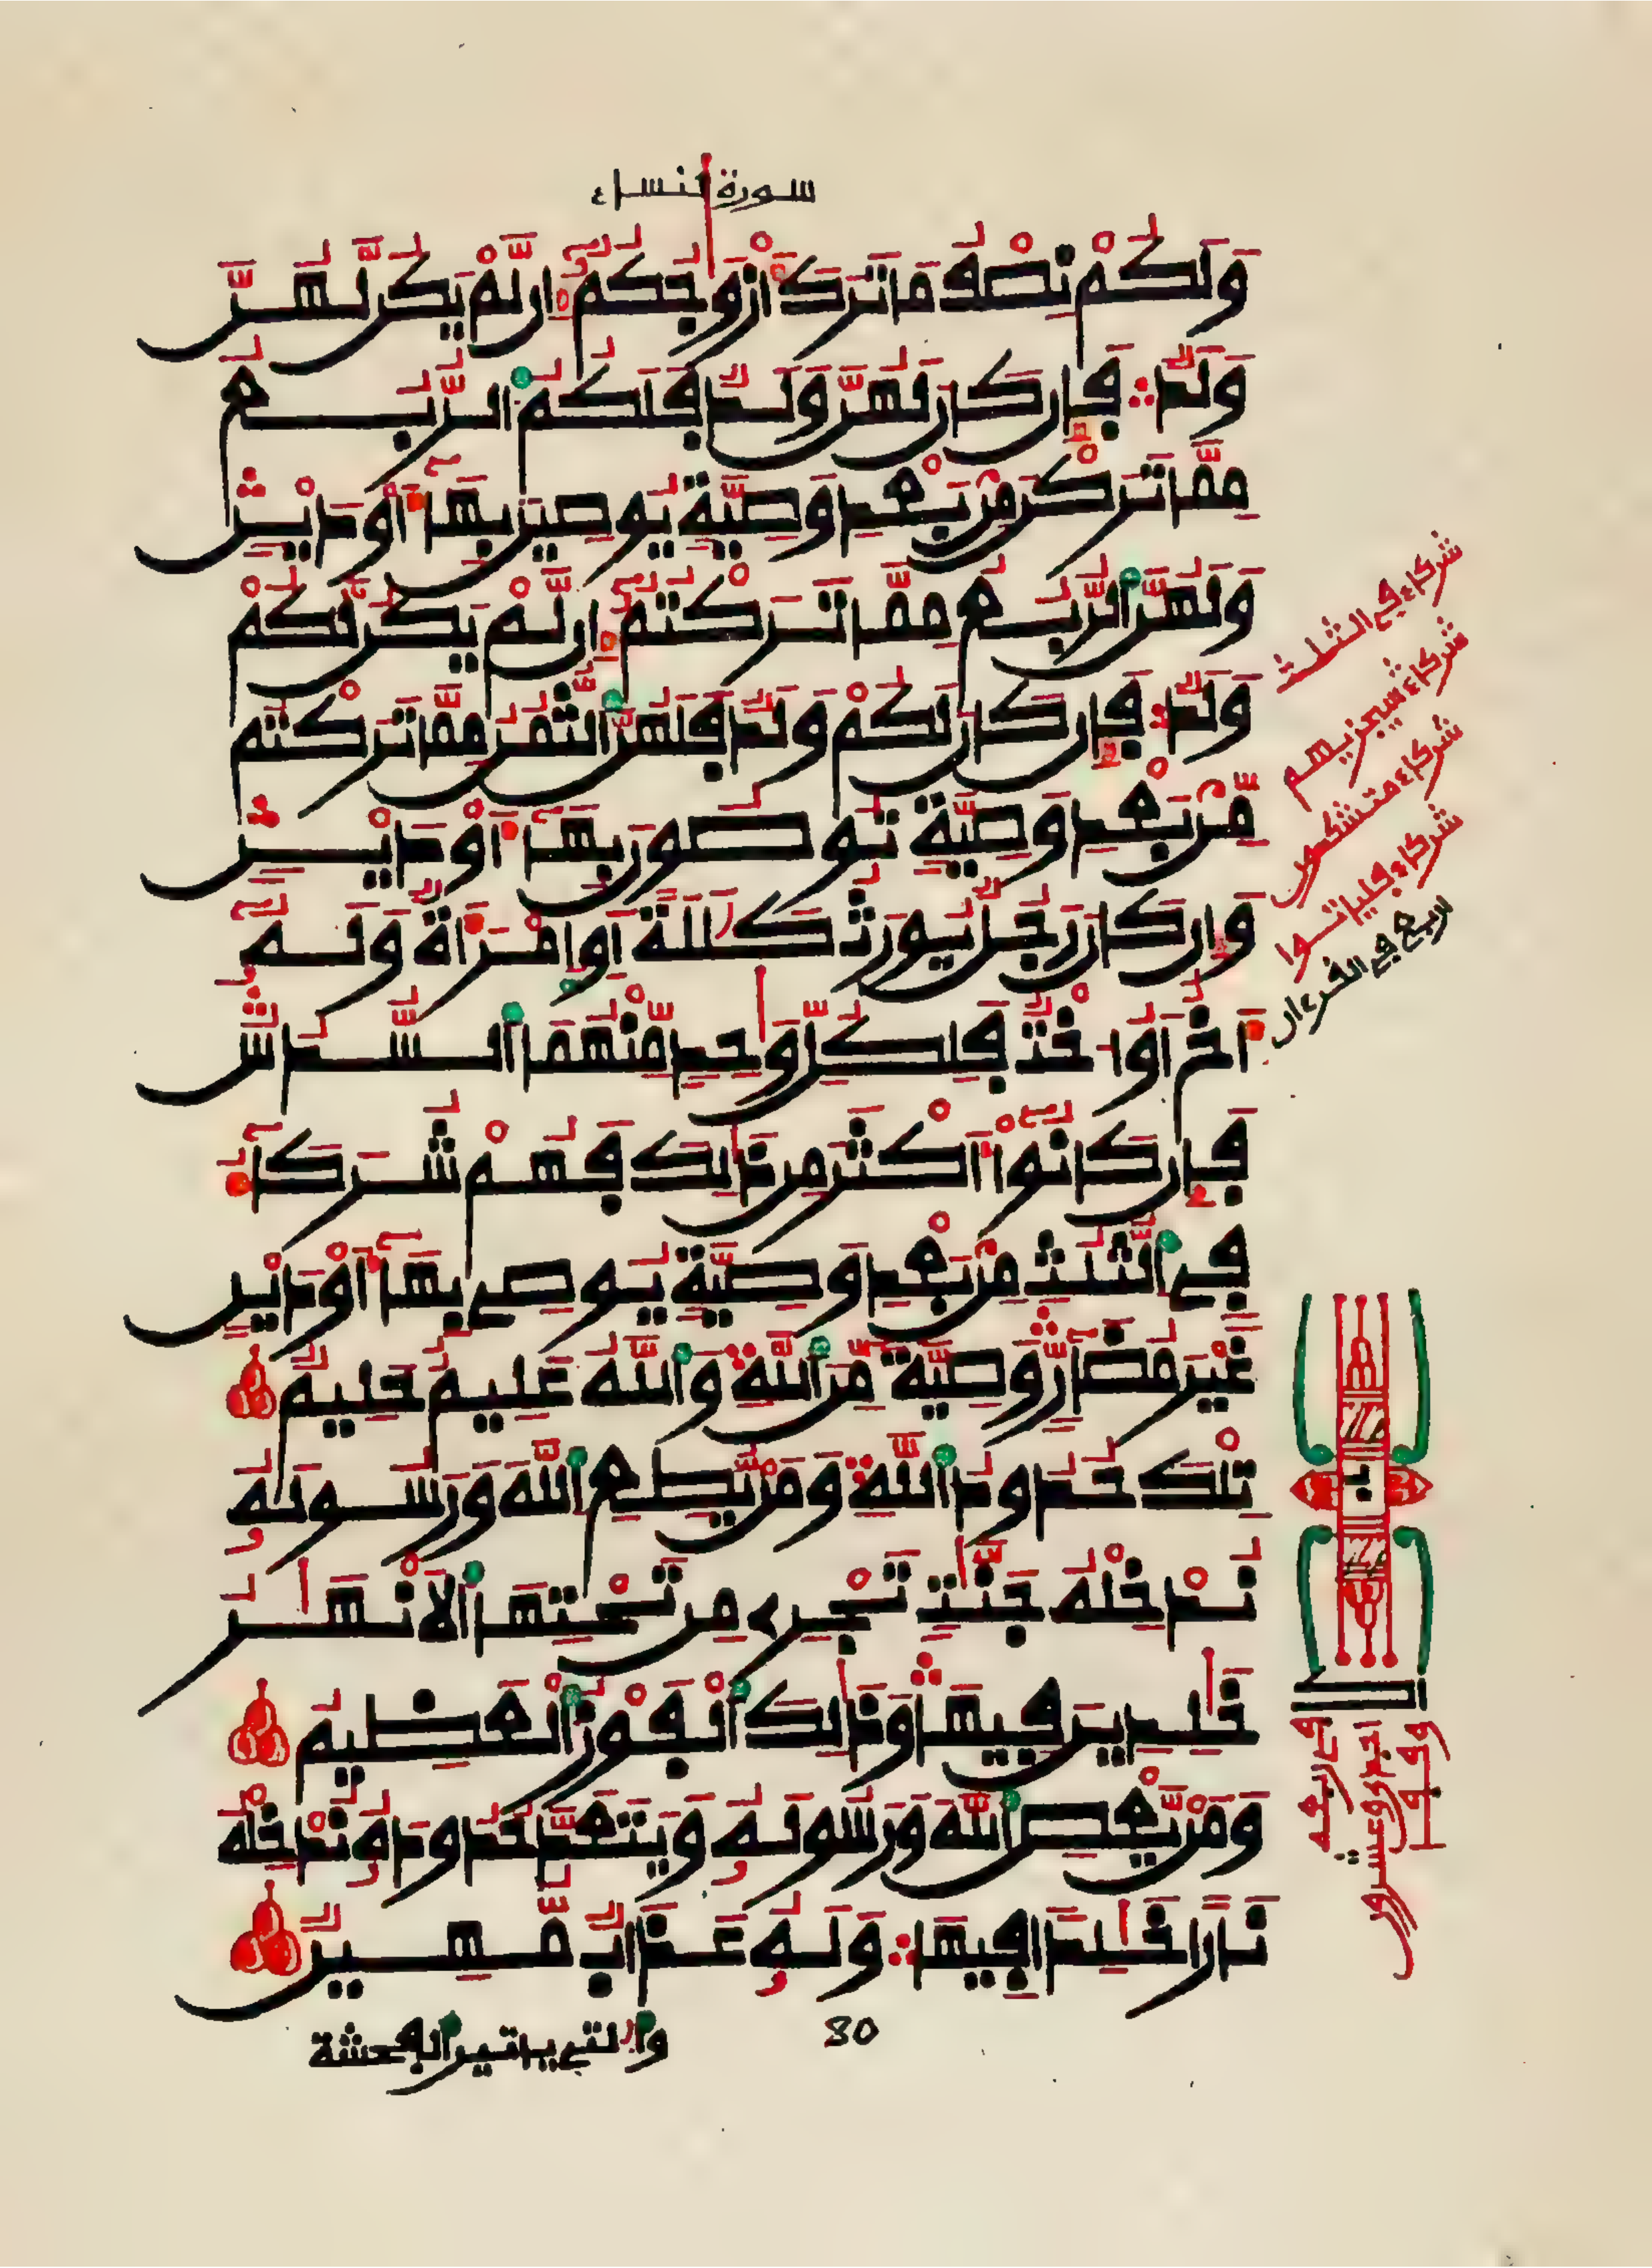 سورة النساء
وَلَكُمْ نِصْفُ مَا تَرَكَ أَزْوَٰجُكُمْ إِن لَّمْ يَكُن لَّهُنَّ
وَلَدٌ فَإِن كَانَ لَهُنَّ وَلَدٌ فَلَكُمُ ٱلرُّبُعُ
مِمَّا تَرَكْنَ مِنۢ بَعْدِ وَصِيَّةٍ يُوصِينَ بِهَآ أَوْ دَيْنٍ
وَلَهُنَّ ٱلرُّبُعُ مِمَّا تَرَكْتُمُۥٓ إِن لَّمْ يَكُن لَّكُمْ
وَلَدٌ فَإِن كَانَ لَكُمْ وَلَدٌ فَلَهُنَّ ٱلثُّمُنُ مِمَّا تَرَكْتُم
مِّنۢ بَعْدِ وَصِيَّةٍ تُوصُونَ بِهَآ أَوْ دَيْنٍ
وَإِن كَانَ رَجُلٌ يُورَثُ كَلَٰلَةً أَوِ ٱمْرَأَةٌ وَلَهُۥٓ
أَخٌ أَوُ اخْتٌ فَلِكُلِّ وَٰحِدٍ مِّنْهُمَا ٱلسُّدُسُ
فَإِن كَانُوٓا۟ أَكْثَرَ مِن ذَٰلِكَ فَهُمْ شُرَكَآءُ
فِى ٱلثُّلُثِ مِنۢ بَعْدِ وَصِيَّةٍ يُوصِى بِهَآ أَوْ دَيْنٍ
غَيْرَ مُضَآرٍّ وَصِيَّةً مِّنَ ٱللَّهِ وَٱللَّهُ عَلِيمٌ حَلِيمٌ
تِلْكَ حُدُودُ ٱللَّهِ وَمَن يُطِعِ ٱللَّهَ وَرَسُولَهُۥ
نُدْخِلْهُ جَنَّٰتٍ تَجْرِى مِن تَحْتِهَا ٱلَانْهَٰرُ
خَٰلِدِينَ فِيهَا وَذَٰلِكَ ٱلْفَوْزُ ٱلْعَظِيمُ
وَمَن يَعْصِ ٱللَّهَ وَرَسُولَهُۥ وَيَتَعَدَّ حُدُودَهُۥ نُدْخِلْهُ
نَارًا خَٰلِدًا فِيهَا وَلَهُۥ عَذَابٌ مُّهِينٌ
80
وَٱلَّٰتِى يَاتِينَ ٱلْفَٰحِشَةَ
شركاء في الثلث
شركاء سيجزيهم
شركاء متشكسون
شركاء فلياتوا
اربع في القرءان